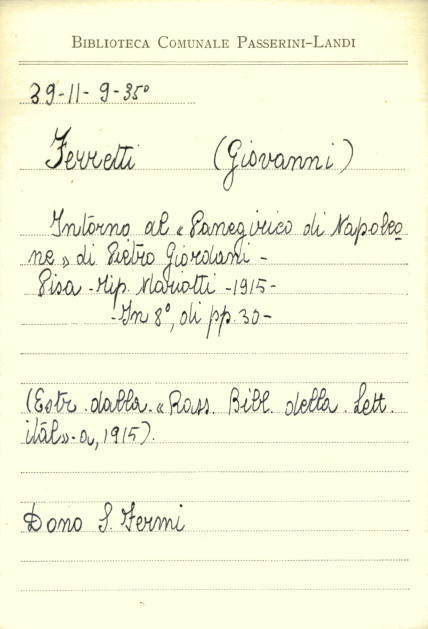 BIBLIOTECA COMUNALE PASSERINI-LANDI
39-11-9-35°
Ferretti (Giovanni)
Intorno al « Panegirico di Napoleo
ne » di Pietro Giordani -
Pisa - tip. Mariotti - 1915 -
- In 8°, di pp. 30 -
(Estr. dalla « Rass. Bibl. della Lett.
ital » - a, 1915).
Dono S. Fermi